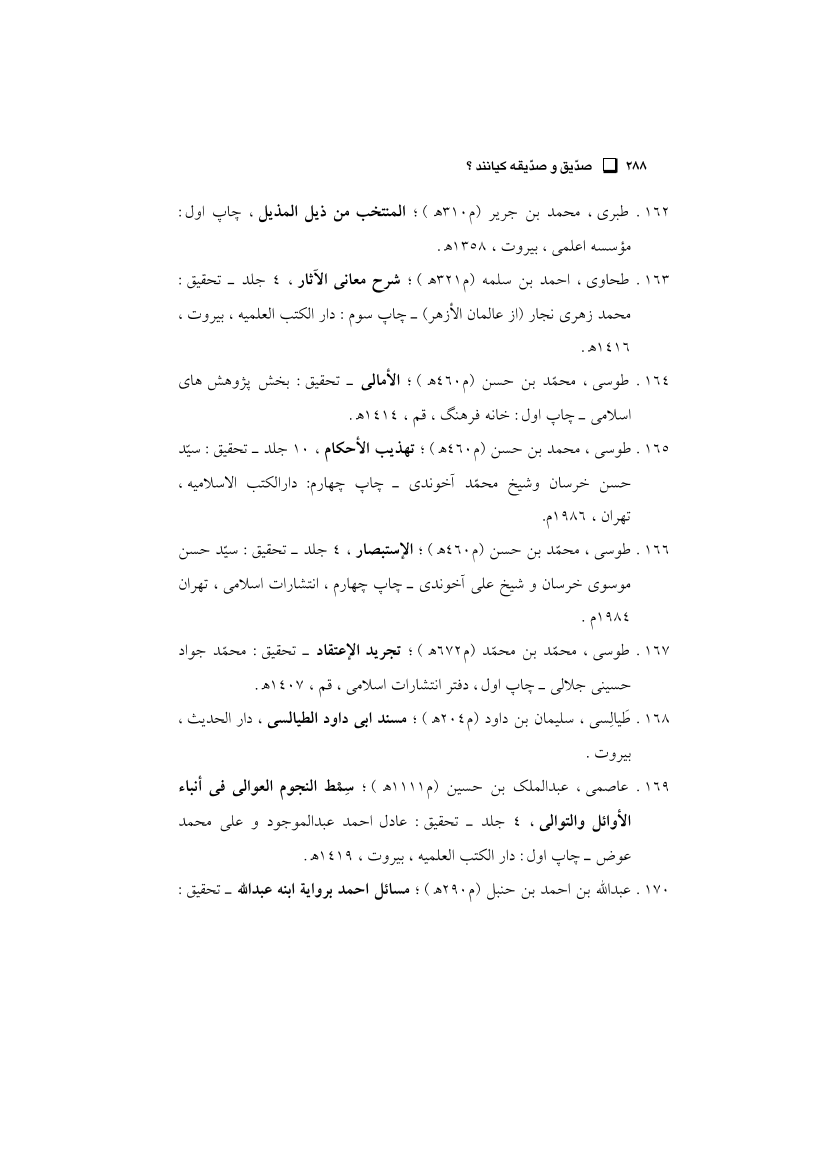 ۲۸۸ ❑ صدّیق و صدّیقه کیانند ؟
١٦٢ . طبری ، محمد بن جریر (م٣١٠ه‍ ) ؛ المنتخب من ذیل المذیل ، چاپ اول :
مؤسسه اعلمی ، بیروت ، ١٣٥٨ه‍ .
١٦٣ . طحاوی ، احمد بن سلمه (م٣٢١ه‍ ) ؛ شرح معانی الآثار ، ٤ جلد ـ تحقیق :
محمد زهری نجار (از عالمان الأزهر) ـ چاپ سوم : دار الکتب العلمیه ، بیروت ،
١٤١٦ه‍ .
١٦٤ . طوسی ، محمّد بن حسن (م٤٦٠ه‍ ) ؛ الأمالی ـ تحقیق : بخش پژوهش های
اسلامی ـ چاپ اول : خانه فرهنگ ، قم ، ١٤١٤ه‍ .
١٦٥ . طوسی ، محمد بن حسن (م٤٦٠ه‍ ) ؛ تهذیب الأحکام ، ١٠ جلد ـ تحقیق : سیّد
حسن خرسان وشیخ محمّد آخوندی ـ چاپ چهارم: دارالکتب الاسلامیه ،
تهران ، ١٩٨٦م.
١٦٦ . طوسی ، محمّد بن حسن (م٤٦٠ه‍ ) ؛ الإستبصار ، ٤ جلد ـ تحقیق : سیّد حسن
موسوی خرسان و شیخ علی آخوندی ـ چاپ چهارم ، انتشارات اسلامی ، تهران
١٩٨٤م .
١٦٧ . طوسی ، محمّد بن محمّد (م٦٧٢ه‍ ) ؛ تجرید الإعتقاد ـ تحقیق : محمّد جواد
حسینی جلالی ـ چاپ اول ، دفتر انتشارات اسلامی ، قم ، ١٤٠٧ه‍ .
١٦٨ . طَیالِسی ، سلیمان بن داود (م٢٠٤ه‍ ) ؛ مسند ابی داود الطیالسی ، دار الحدیث ،
بیروت .
١٦٩ . عاصمی ، عبدالملک بن حسین (م١١١١ه‍ ) ؛ سِمْط النجوم العوالی فی أنباء
الأوائل والتوالی ، ٤ جلد ـ تحقیق : عادل احمد عبدالموجود و علی محمد
عوض ـ چاپ اول : دار الکتب العلمیه ، بیروت ، ١٤١٩ه‍ .
١٧٠ . عبدالله بن احمد بن حنبل (م٢٩٠ه‍ ) ؛ مسائل احمد بروایة ابنه عبدالله ـ تحقیق :